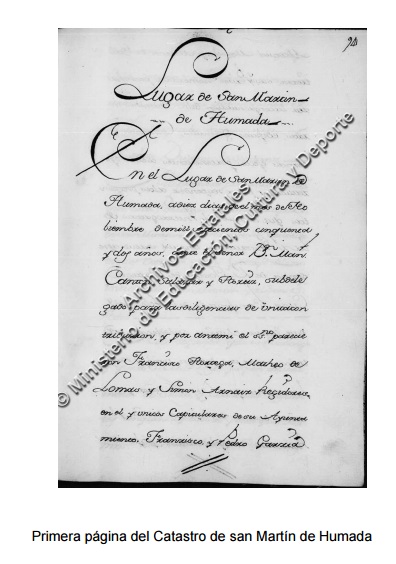 94
Lugar de San Martin
de Humada
En el Lugar de San Martin de
Humada, a diez dias del mes de No
biembre de mil setecientos cinquenta
y dos años, ante el señor Dn. Man.l
Cano, y Perez, subdele
gado para las diligencias de Unica con
tribucion, y por ante mi el ss.no parecie
ron Francisco Matheo de
Lomas y Simon Arnaiz Regidores
en el y unicos Capitulares de su Ayunta
miento, Francisco, y Pedro Garcia
© Ministerio de Educación, Cultura y Deporte
Archivos Estatales
Primera página del Catastro de san Martín de Humada